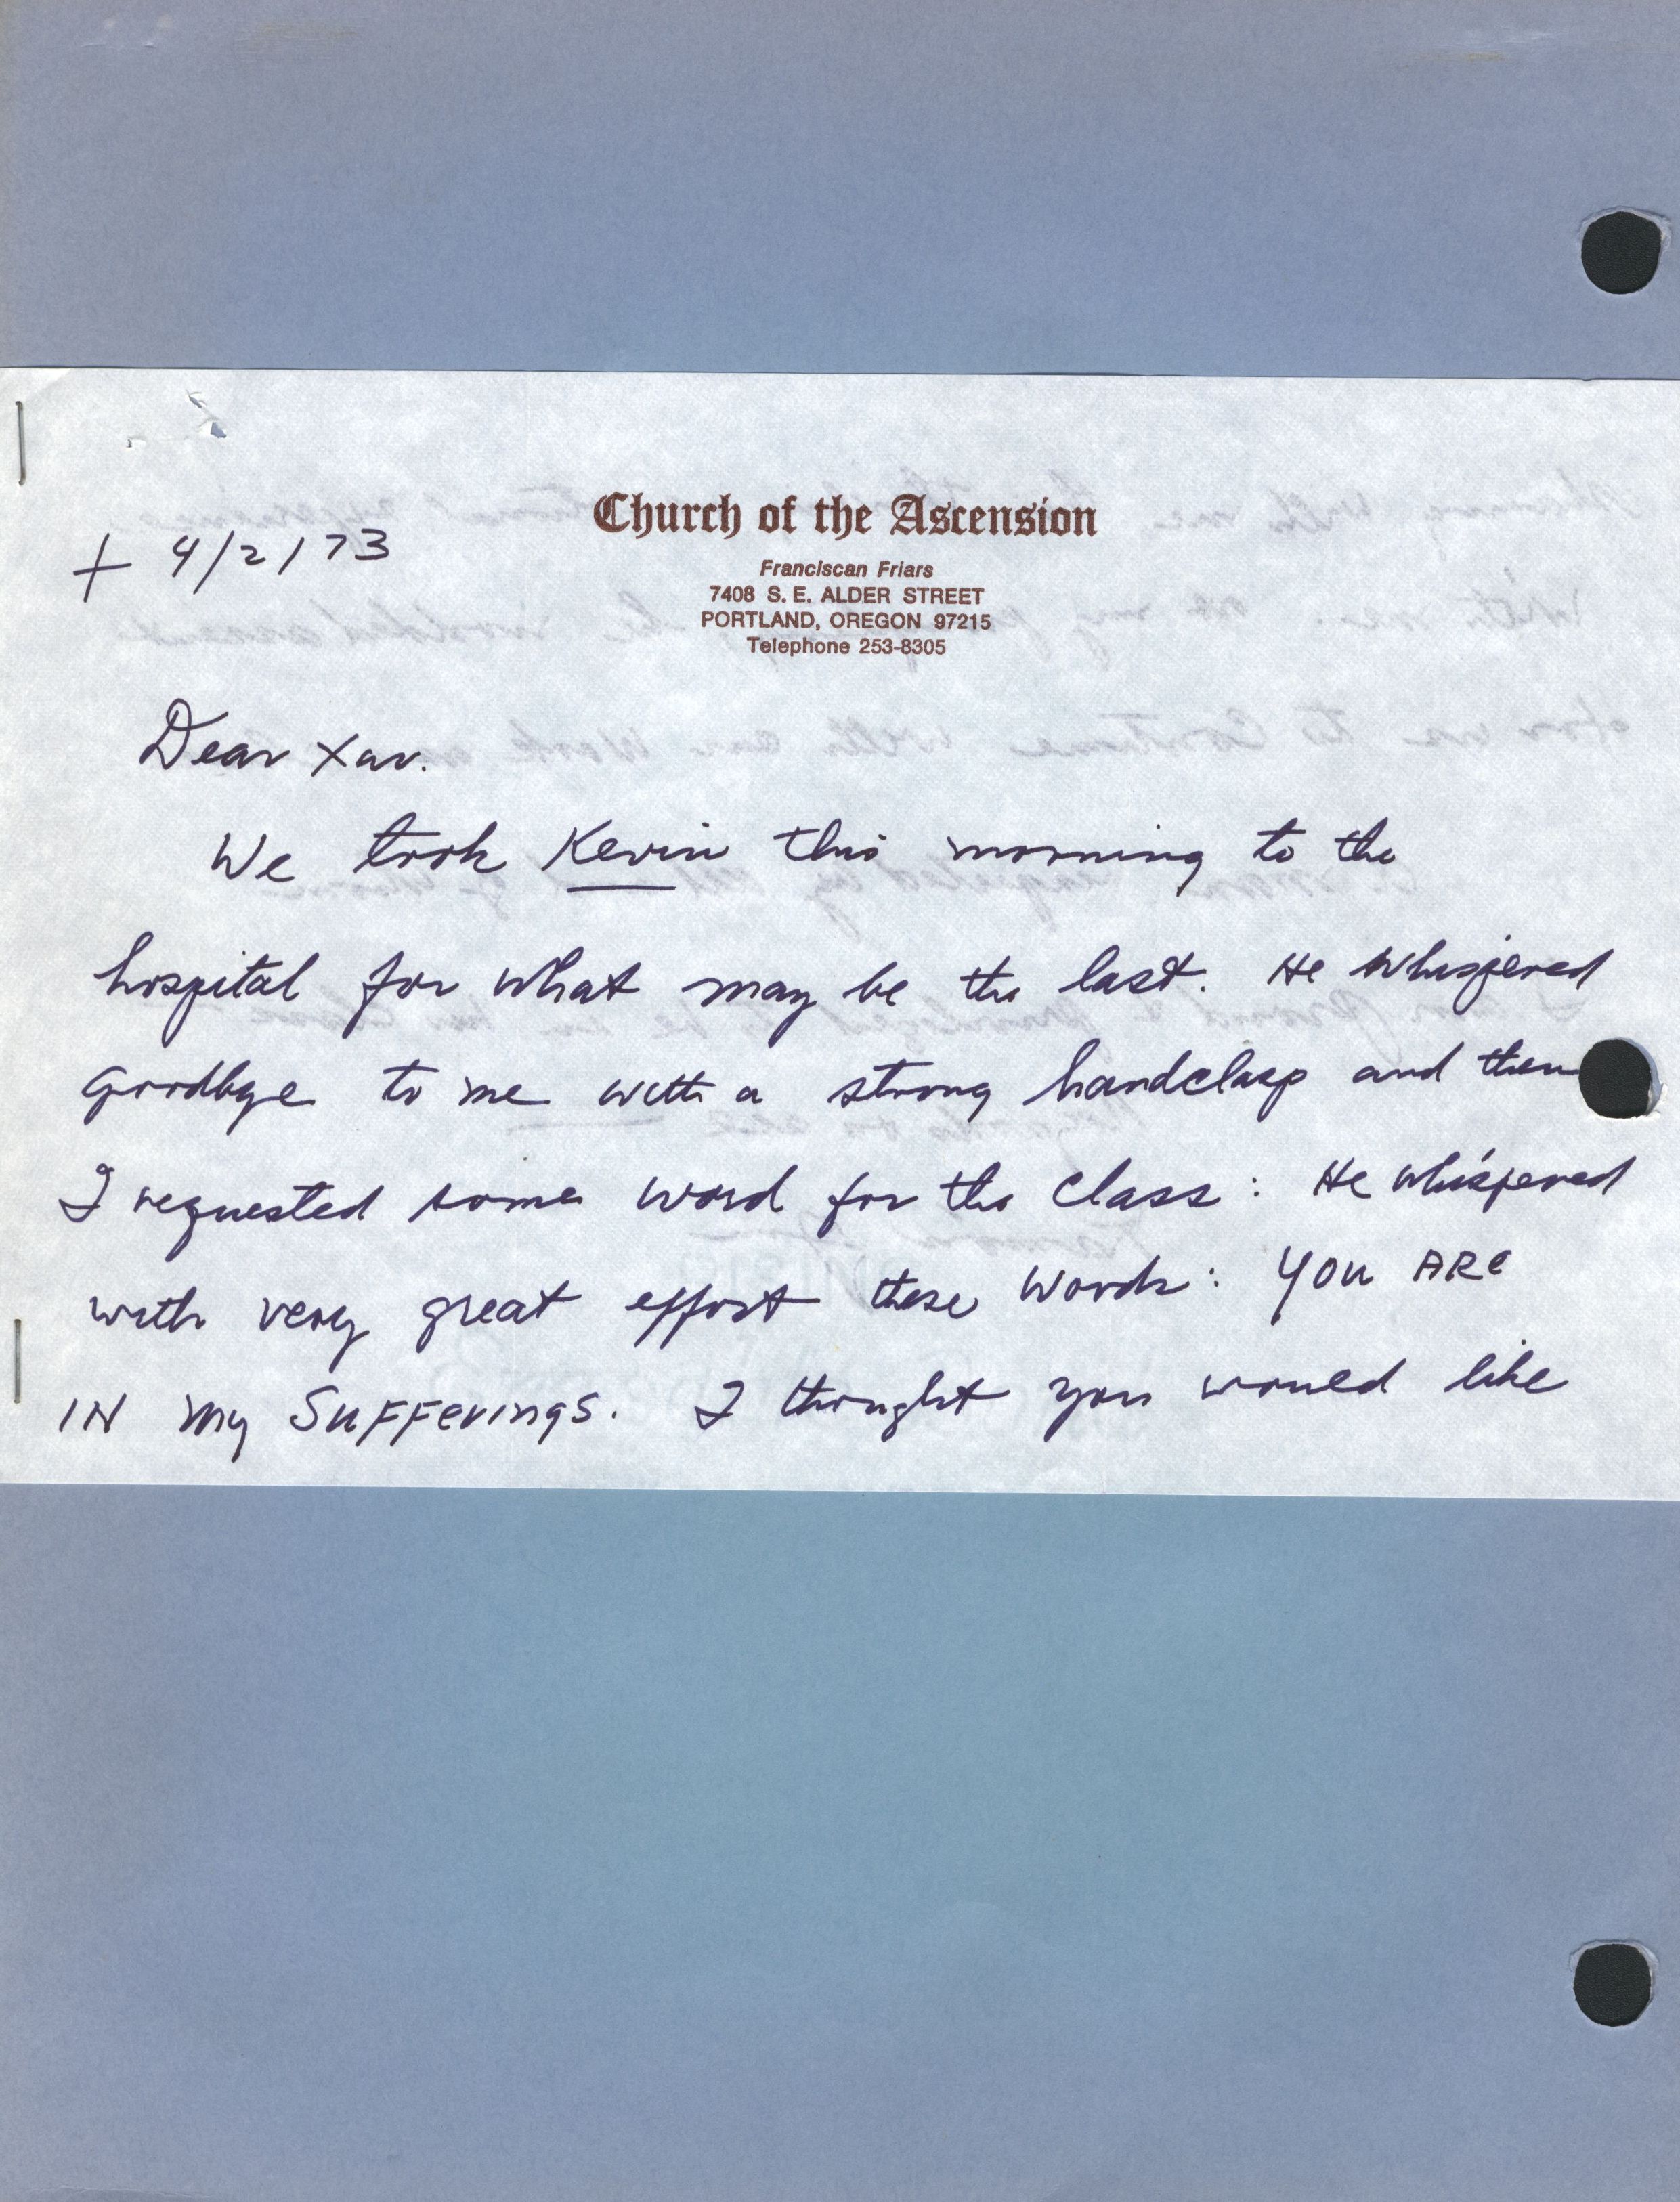 Church of the Ascension
Franciscan Friars
7408 S. E. ALDER STREET
PORTLAND, OREGON 97215
Telephone 253-8305
+ 4/2/73
Dear Xav.
We took Kevin this morning to the
hospital for what may be the last. He whispered
goodbye to me with a strong handclasp and then
I requested some word for the class: He whispered
with very great effort these words: YOU ARE
IN my SUFFERINGS. I thought you would like